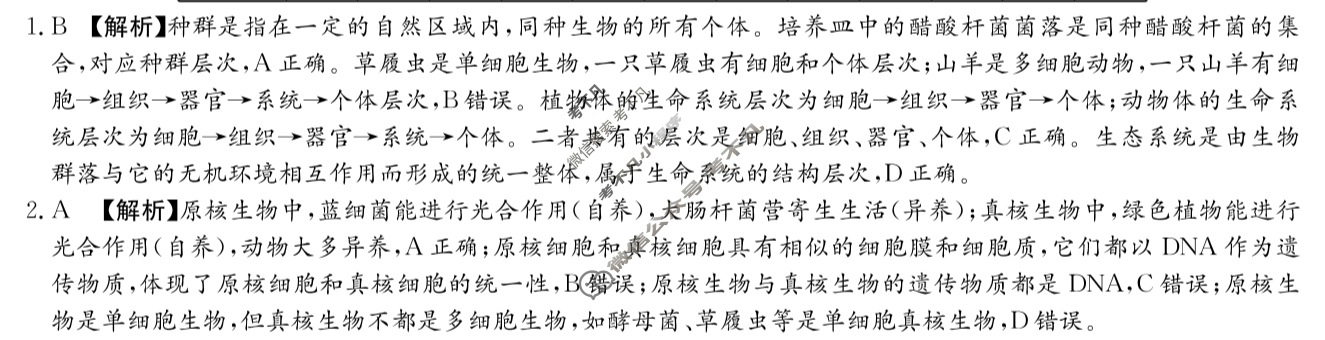 1. B 【解析】种群是指在一定的自然区域内,同种生物的所有个体。培养皿中的醋酸杆菌菌落是同种醋酸杆菌的集
合,对应种群层次,A 正确。草履虫是单细胞生物,一只草履虫有细胞和个体层次;山羊是多细胞动物,一只山羊有细
胞→组织→器官→系统→个体层次,B 错误。植物体的生命系统层次为细胞→组织→器官→个体;动物体的生命系
统层次为细胞→组织→器官→系统→个体。二者共有的层次是细胞、组织、器官、个体,C 正确。生态系统是由生物
群落与它的无机环境相互作用而形成的统一整体,属于生命系统的结构层次,D 正确。
2. A 【解析】原核生物中,蓝细菌能进行光合作用(自养),大肠杆菌营寄生生活(异养);真核生物中,绿色植物能进行
光合作用(自养),动物大多异养,A 正确;原核细胞和真核细胞具有相似的细胞膜和细胞质,它们都以 DNA 作为遗
传物质,体现了原核细胞和真核细胞的统一性,B 错误;原核生物与真核生物的遗传物质都是 DNA,C 错误;原核生
物是单细胞生物,但真核生物不都是多细胞生物,如酵母菌、草履虫等是单细胞真核生物,D 错误。